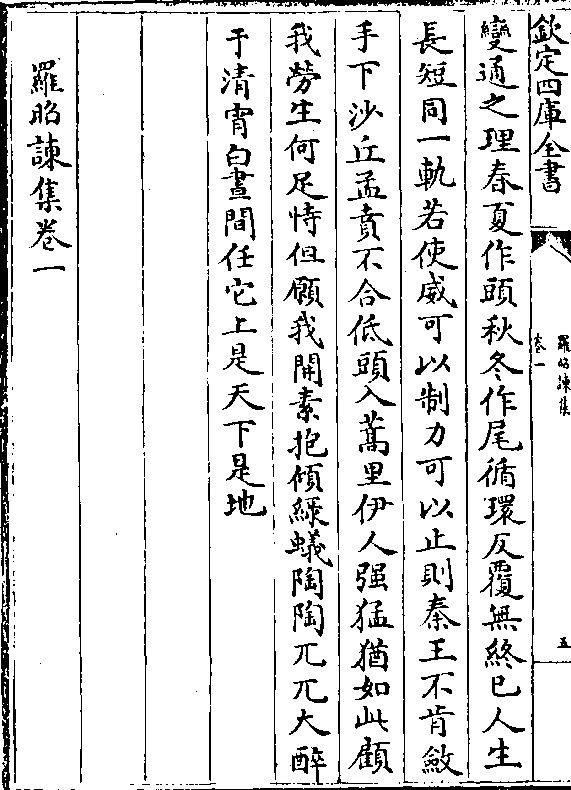 欽定四庫全書
羅昭諫集
卷一
五
變通之理春夏作頭秋冬作尾循環反覆無終已人生
長短同一軌若使威可以制力可以止則秦王不肯斂
手下沙丘孟賁不合低頭入蒿里伊人强猛猶如此顧
我勞生何足恃但願我開素抱傾綠蟻陶陶兀兀大醉
于清宵白晝間任它上是天下是地
羅昭諫集卷一